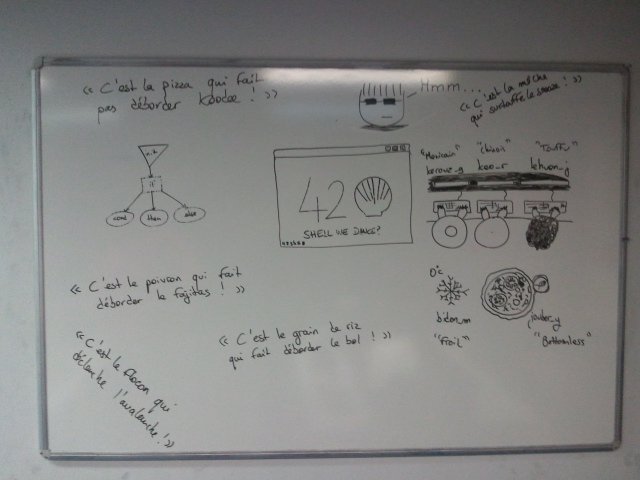 « C'est la pizza qui fait
pas déborder Koodee ! »
Hmm...
« C'est la
qui le ! »
if
cond
then
else
42
SHELL WE DANCE?
"Mexicain"
"Chinois"
"Touffu"
koo_r
0°C
« C'est le poivron qui fait
déborder le fajitas ! »
bidon_m
"Froid"
"Bottomless"
« C'est le grain de riz
qui fait déborder le bol ! »
« C'est le flocon qui
déclenche l'avalanche ! »